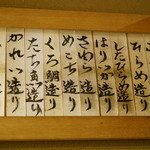 ひらめ造り
したびらめ造り
はりいか造り
さわら造り
めごち造り
くろ鯛造り
たち魚造り
かれい造り